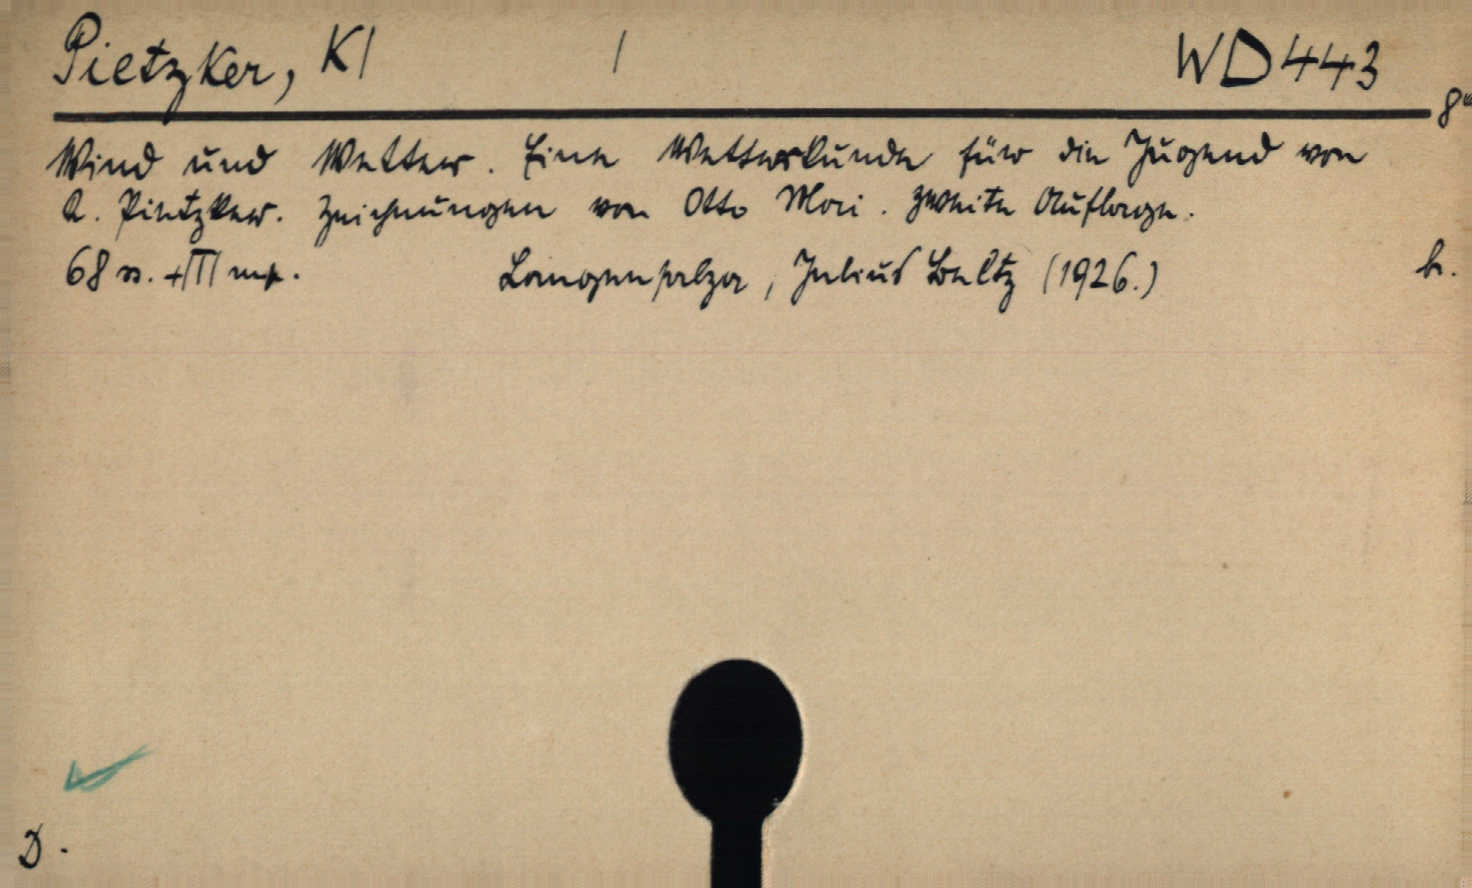 Pietzker, K| | WD443
8°
Wind und Wetter. Eine Wetterkunde für die Jugend von
K. Pietzker. Zeichnungen von Otto Mori. Zweite Auflage.
68 ss. +III np. Langensalza, Julius Beltz (1926.) b.
D.